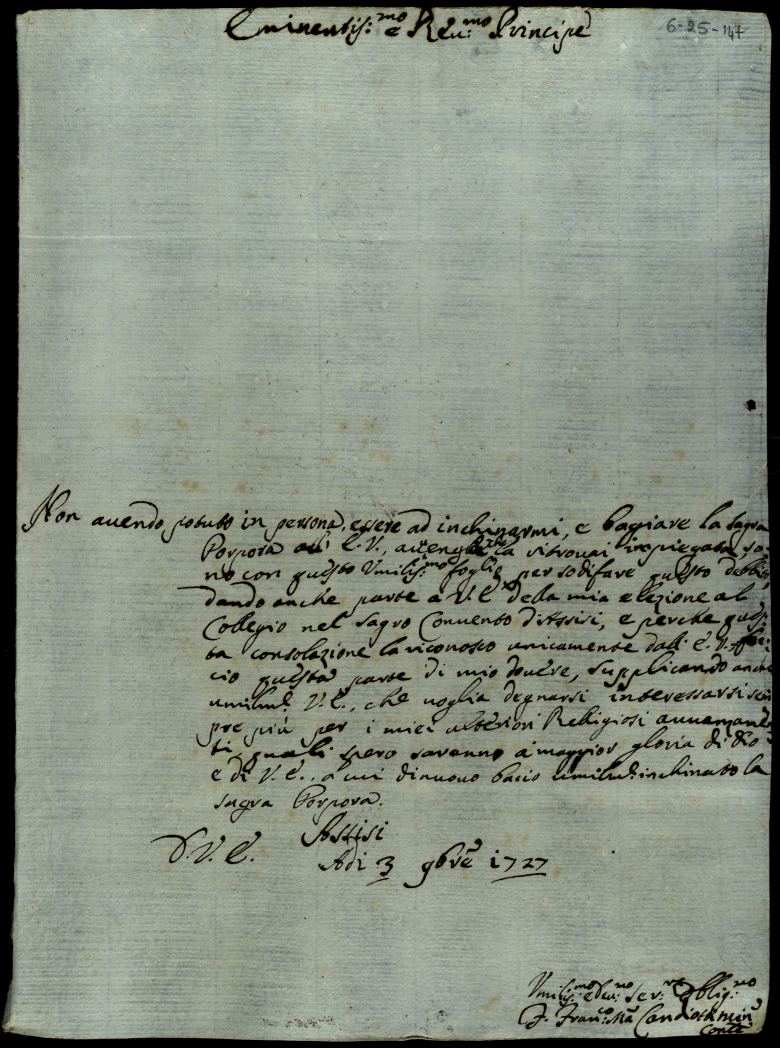 Eminentis:mo e Reu:mo Principe
6-25-147
Non auendo potuto in persona essere ad inchinarmi, e baciare la sagra
Porpora all' E.V., la ritrouai impiegata, so
no con questo Umilis:mo foglio per sodisfare questo debbito,
dando anche parte a V.E. della mia elezione al
Collegio nel Sagro Conuento d'Assisi, e perche ques
ta consolazione la riconosco unicamente dall' E.V. fac
cio questa parte di mio douere, supplicando anche
umilm: V.E., che uoglia degnarsi interessarsi sem
pre più per i miei ulteriori Religiosi auuanzamen
ti, quali spero saranno a maggior gloria di Dio
e di V.E., a cui di nuouo bacio umilm: inchinato la
sagra Porpora.
D.V.E. Assisi
Adi 3 9bre 1727
Umilis:mo e Deu:mo Ser:re Oblig:mo
F. Fran:co Ma
Conte